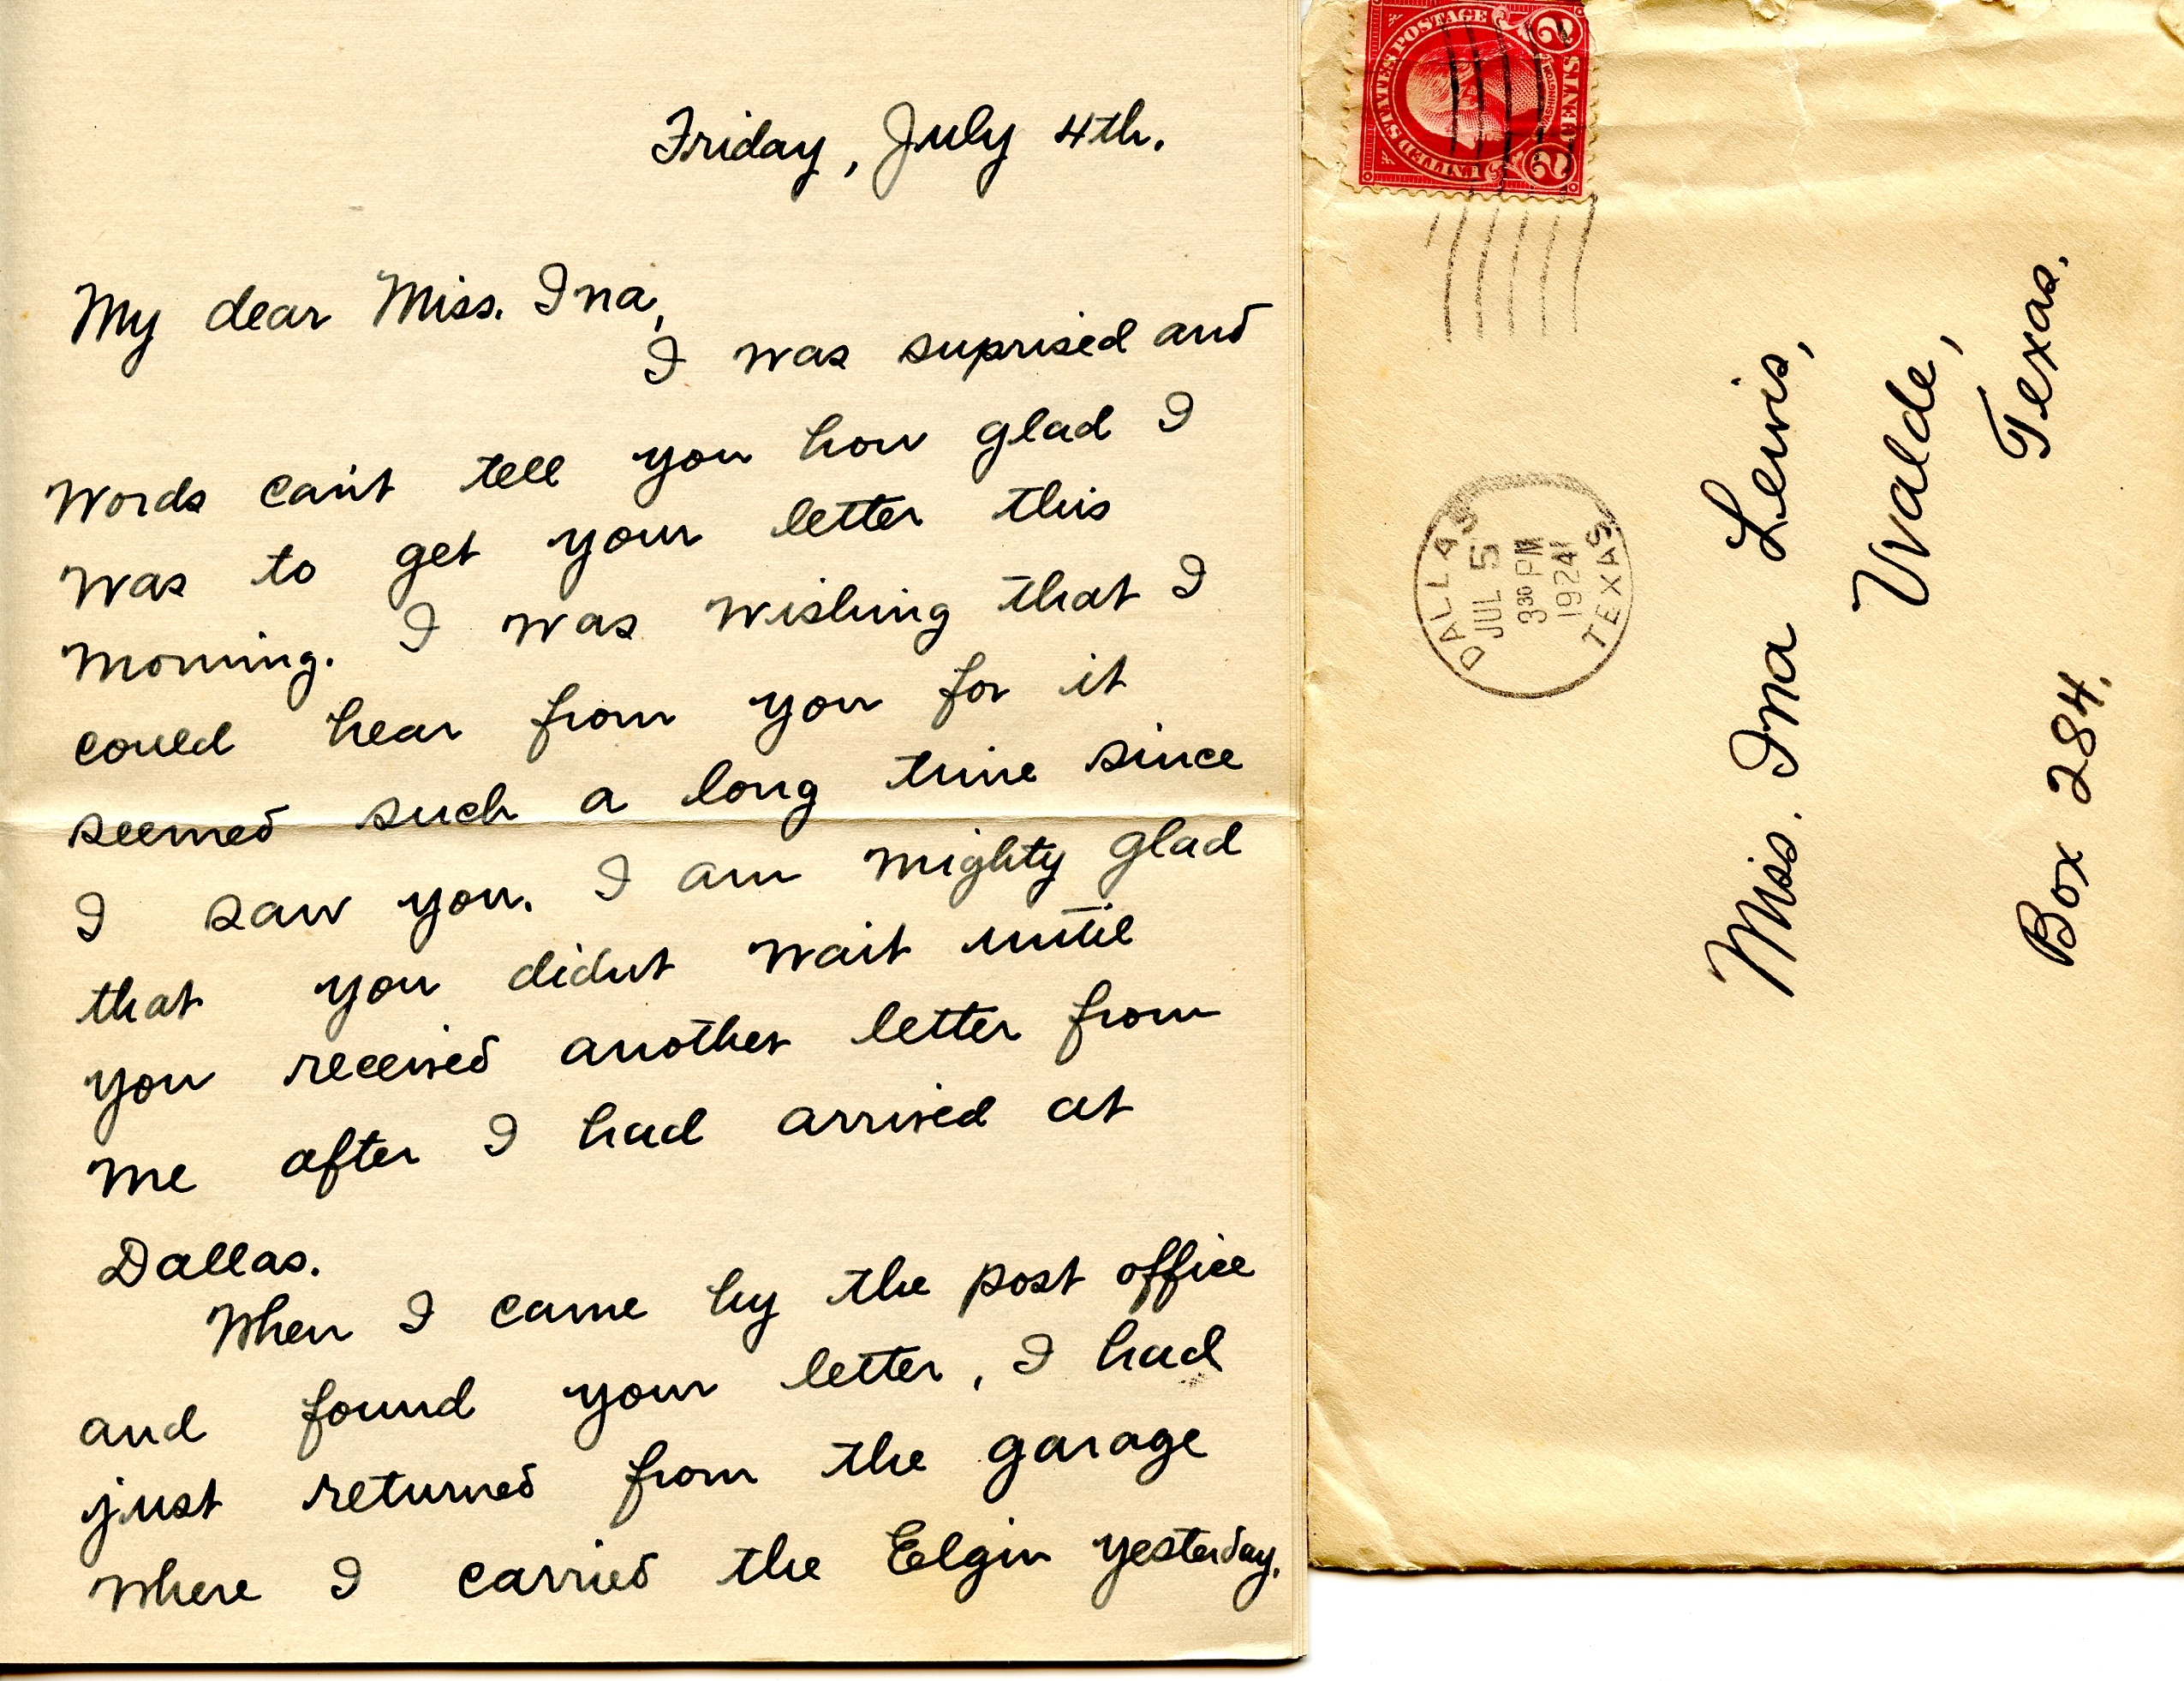 Friday, July 4th.
My dear Miss. Ina,
I was suprised and
words can't tell you how glad I
was to get your letter this
morning. I was wishing that I
could hear from you for it
seemed such a long time since
I saw you. I am mighty glad
that you didnt wait until
you received another letter from
me after I had arrived at
Dallas.
When I came by the post office
and found your letter, I had
just returned from the garage
where I carried the Elgin yesterday.
UNITED STATES POSTAGE
WASHINGTON
2 CENTS 2
DALLAS
JUL 5
3 30 PM
1924
TEXAS
Miss. Ina Lewis,
Uvalde,
Texas.
Box 284.